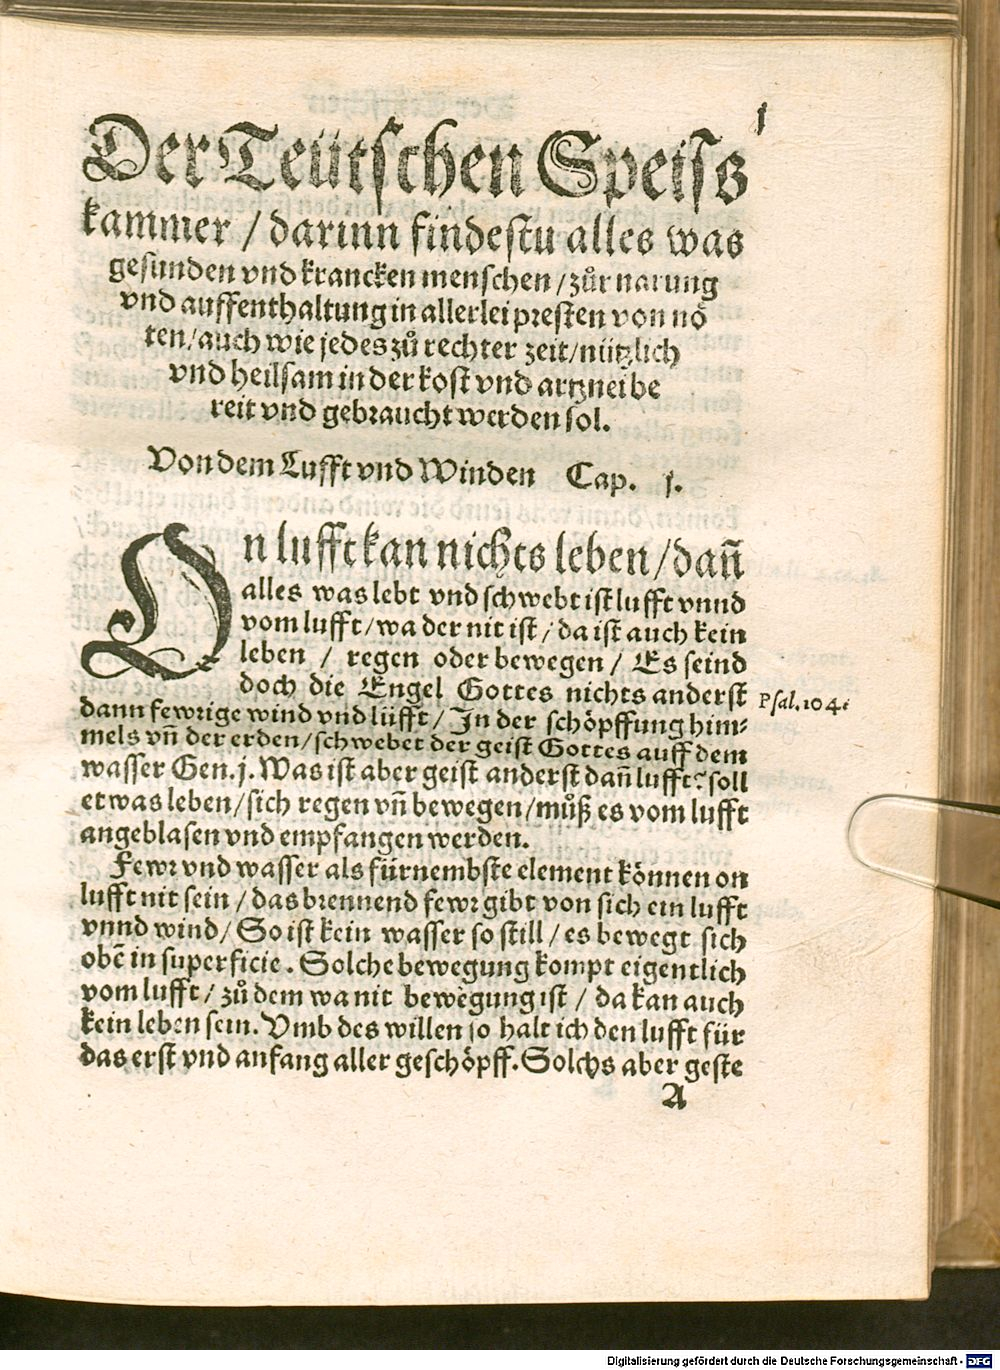 1
Der Teütschen Speiß
kammer / darinn findestu alles was
gesunden vnd krancken menschen / zůr narung
vnd auffenthaltung in allerlei presten von nö
ten / auch wie jedes zů rechter zeit / nützlich
vnd heilsam in der kost vnd artznei be
reit vnd gebraucht werden sol.
Von dem Lufft vnd Winden Cap. j.
On lufft kan nichts leben / dañ
alles was lebt vnd schwebt ist lufft vnnd
vom lufft / wa der nit ist / da ist auch kein
leben / regen oder bewegen / Es seind
doch die Engel Gottes nichts anderst
Psal. 104.
dann fewrige wind vnd lüfft / In der schöpffung him⸗
mels vñ der erden / schwebet der geist Gottes auff dem
wasser Gen. j. Was ist aber geist anderst dañ lufft? soll
etwas leben / sich regen vñ bewegen / můß es vom lufft
angeblasen vnd empfangen werden.
Fewr vnd wasser als fürnembste element können on
lufft nit sein / das brennend fewr gibt von sich ein lufft
vnnd wind / So ist kein wasser so still / es bewegt sich
obẽ in superficie. Solche bewegung kompt eigentlich
vom lufft / zů dem wa nit bewegung ist / da kan auch
kein leben sein. Vmb des willen so halt ich den lufft für
das erst vnd anfang aller geschöpff. Solchs aber geste
A
Digitalisierung gefördert durch die Deutsche Forschungsgemeinschaft - DFG